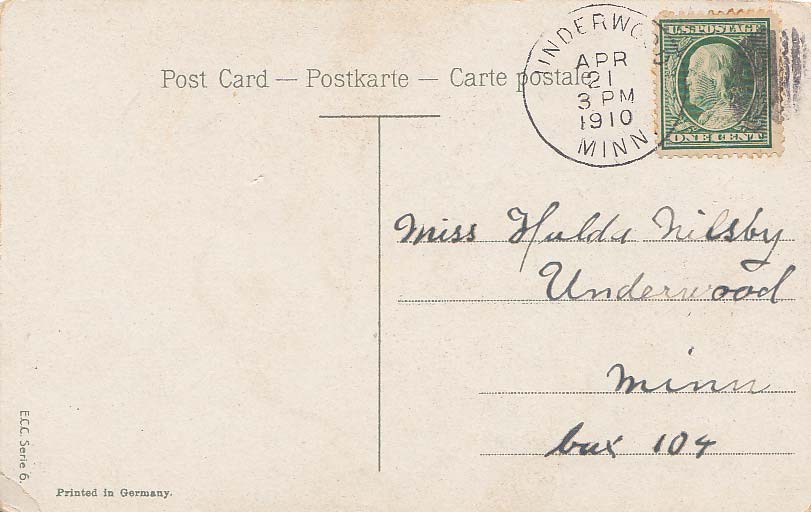 Post Card — Postkarte — Carte postale
UNDERWOOD
APR
21
3 PM
1910
MINN.
U.S. POSTAGE
ONE CENT
Miss Hulda Nilsby
Underwood
Minn
box 104
E.C.C. Serie 6.
Printed in Germany.